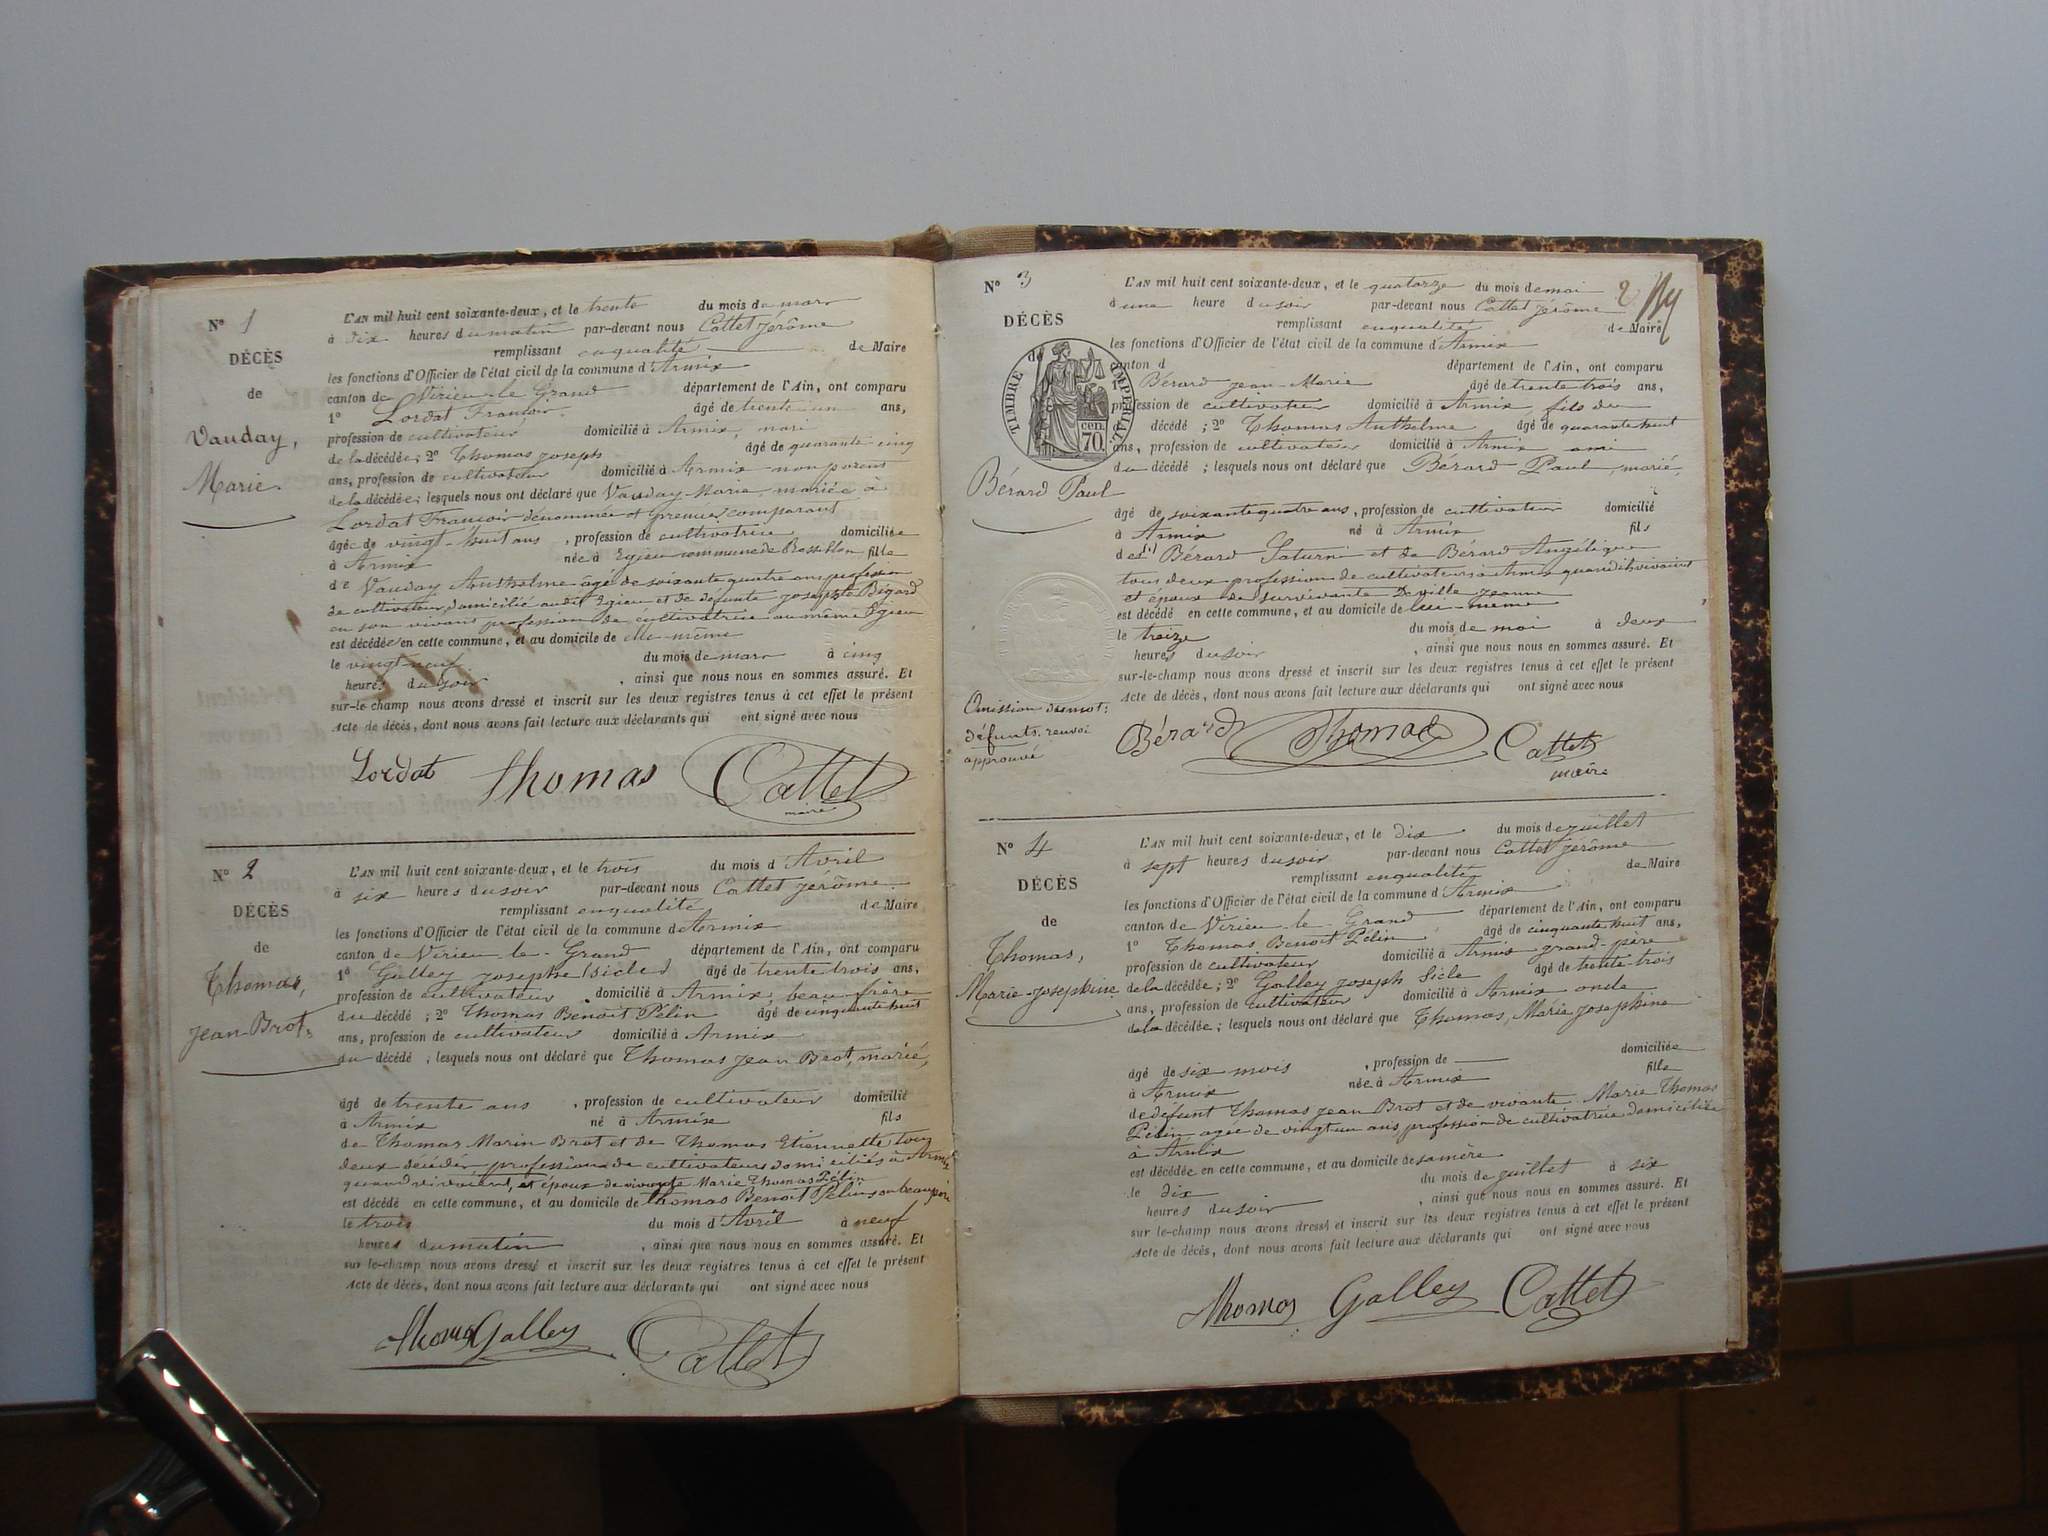 N° 1
DÉCÈS
de
Vauday,
Marie.
L'AN mil huit cent soixante-deux, et le trente du mois de mars
à six heures du matin par-devant nous Cattet Jérôme
remplissant en qualité de Maire
les fonctions d'Officier de l'état civil de la commune d'Armix
canton de Virieu-le-Grand département de l'Ain, ont comparu
1° Lordat François âgé de trente un ans,
profession de cultivateur domicilié à Armix, mari
de la décédée; 2° Thomas Joseph âgé de quarante cinq
ans, profession de cultivateur domicilié à Armix non parent
de la décédée; lesquels nous ont déclaré que Vauday Marie, mariée à
Lordat François dénommé et premier comparant
âgée de vingt-huit ans, profession de cultivatrice domiciliée
à Armix née à Egieu commune de Rossillon fille
de Vauday Anthelme âgé de soixante quatre ans profession
de cultivateur, domicilié audit Egieu et de défunte Josephte Bigard
en son vivant profession de cultivatrice au même Egieu
est décédée en cette commune, et au domicile de elle-même
le vingt-neuf du mois de mars à cinq
heures du soir, ainsi que nous nous en sommes assuré. Et
sur-le-champ nous avons dressé et inscrit sur les deux registres tenus à cet effet le présent
Acte de décès, dont nous avons fait lecture aux déclarants qui ont signé avec nous
Lordat Thomas Cattet
maire
N° 2
DÉCÈS
de
Thomas,
Jean Brot.
L'AN mil huit cent soixante-deux, et le trois du mois d'Avril
à six heures du soir par-devant nous Cattet Jérôme
remplissant en qualité de Maire
les fonctions d'Officier de l'état civil de la commune d'Armix
canton de Virieu-le-Grand département de l'Ain, ont comparu
1° Galley Josephe (Sicle) âgé de trente trois ans,
profession de cultivateur domicilié à Armix, beau-frère
du décédé; 2° Thomas Benoit Pélin âgé de cinquante huit
ans, profession de cultivateur domicilié à Armix
du décédé; lesquels nous ont déclaré que Thomas Jean Brot, marié,
âgé de trente ans, profession de cultivateur domicilié
à Armix né à Armix fils
de Thomas Marin Brot et de Thomas Etiennette tous
deux décédés professions de cultivateurs domiciliés à Armix
quand vivoient, et époux de vivante Marie Thomas Pélin
est décédé en cette commune, et au domicile de Thomas Benoit Pélin son beau père
le trois du mois d'Avril à neuf
heures du matin, ainsi que nous nous en sommes assuré. Et
sur-le-champ nous avons dressé et inscrit sur les deux registres tenus à cet effet le présent
Acte de décès, dont nous avons fait lecture aux déclarants qui ont signé avec nous
Thomas Galley Cattet
2
N° 3
DÉCÈS
TIMBRE IMPÉRIAL
70 CEN.
Bérard Paul
L'AN mil huit cent soixante-deux, et le quatorze du mois de mai
à une heure du soir par-devant nous Cattet Jérôme
remplissant en qualité de Maire
les fonctions d'Officier de l'état civil de la commune d'Armix
canton d département de l'Ain, ont comparu
1° Bérard Jean-Marie âgé de trente trois ans,
profession de cultivateur domicilié à Armix, fils du
décédé; 2° Thomas Anthelme âgé de quarante huit
ans, profession de cultivateur domicilié à Armix ami
du décédé; lesquels nous ont déclaré que Bérard Paul, marié,
âgé de soixante quatre ans, profession de cultivateur domicilié
à Armix né à Armix fils
des Bérard Saturni et de Bérard Angélique
tous deux profession de cultivateurs à Armix quand ils vivaient
et époux de survivante Deville Jeanne
est décédé en cette commune, et au domicile de lui-même
le treize du mois de mai à deux
heures du soir, ainsi que nous nous en sommes assuré. Et
sur-le-champ nous avons dressé et inscrit sur les deux registres tenus à cet effet le présent
Acte de décès, dont nous avons fait lecture aux déclarants qui ont signé avec nous
Omission du mot:
défunts. renvoi
approuvé
Bérard Thomas Cattet
maire
N° 4
DÉCÈS
de
Thomas,
Marie-Josephine
L'AN mil huit cent soixante-deux, et le dix du mois de juillet
à sept heures du soir par-devant nous Cattet Jérôme
remplissant en qualité de Maire
les fonctions d'Officier de l'état civil de la commune d'Armix
canton de Virieu-le-Grand département de l'Ain, ont comparu
1° Thomas Benoit Pélin âgé de cinquante huit ans,
profession de cultivateur domicilié à Armix grand-père
de la décédée; 2° Galley Joseph Sicle âgé de trente-trois
ans, profession de cultivateur domicilié à Armix oncle
de la décédée; lesquels nous ont déclaré que Thomas, Marie Josephine
âgé de six mois, profession de domiciliée
à Armix née à Armix fille
de défunt Thomas Jean Brot et de vivante Marie Thomas
Pélin, agée de vingt un ans profession de cultivatrice domiciliée
à Armix
est décédée en cette commune, et au domicile de sa mère
le dix du mois de juillet à six
heures du soir, ainsi que nous nous en sommes assuré. Et
sur-le-champ nous avons dressé et inscrit sur les deux registres tenus à cet effet le présent
Acte de décès, dont nous avons fait lecture aux déclarants qui ont signé avec nous
Thomas Galley Cattet